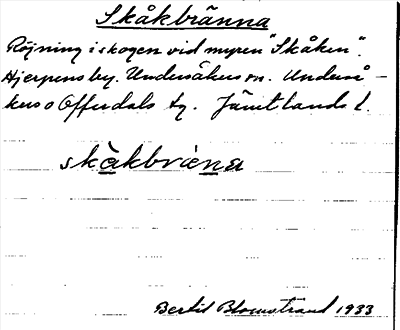 Skåkbränna
Röjning i skogen vid myren "Skåken".
Hjerpens by. Undersåkers sn. Underså-
kers o Offerdals tg. Jämtlands l.
skàkbràna
Bertil Blomstrand 1933